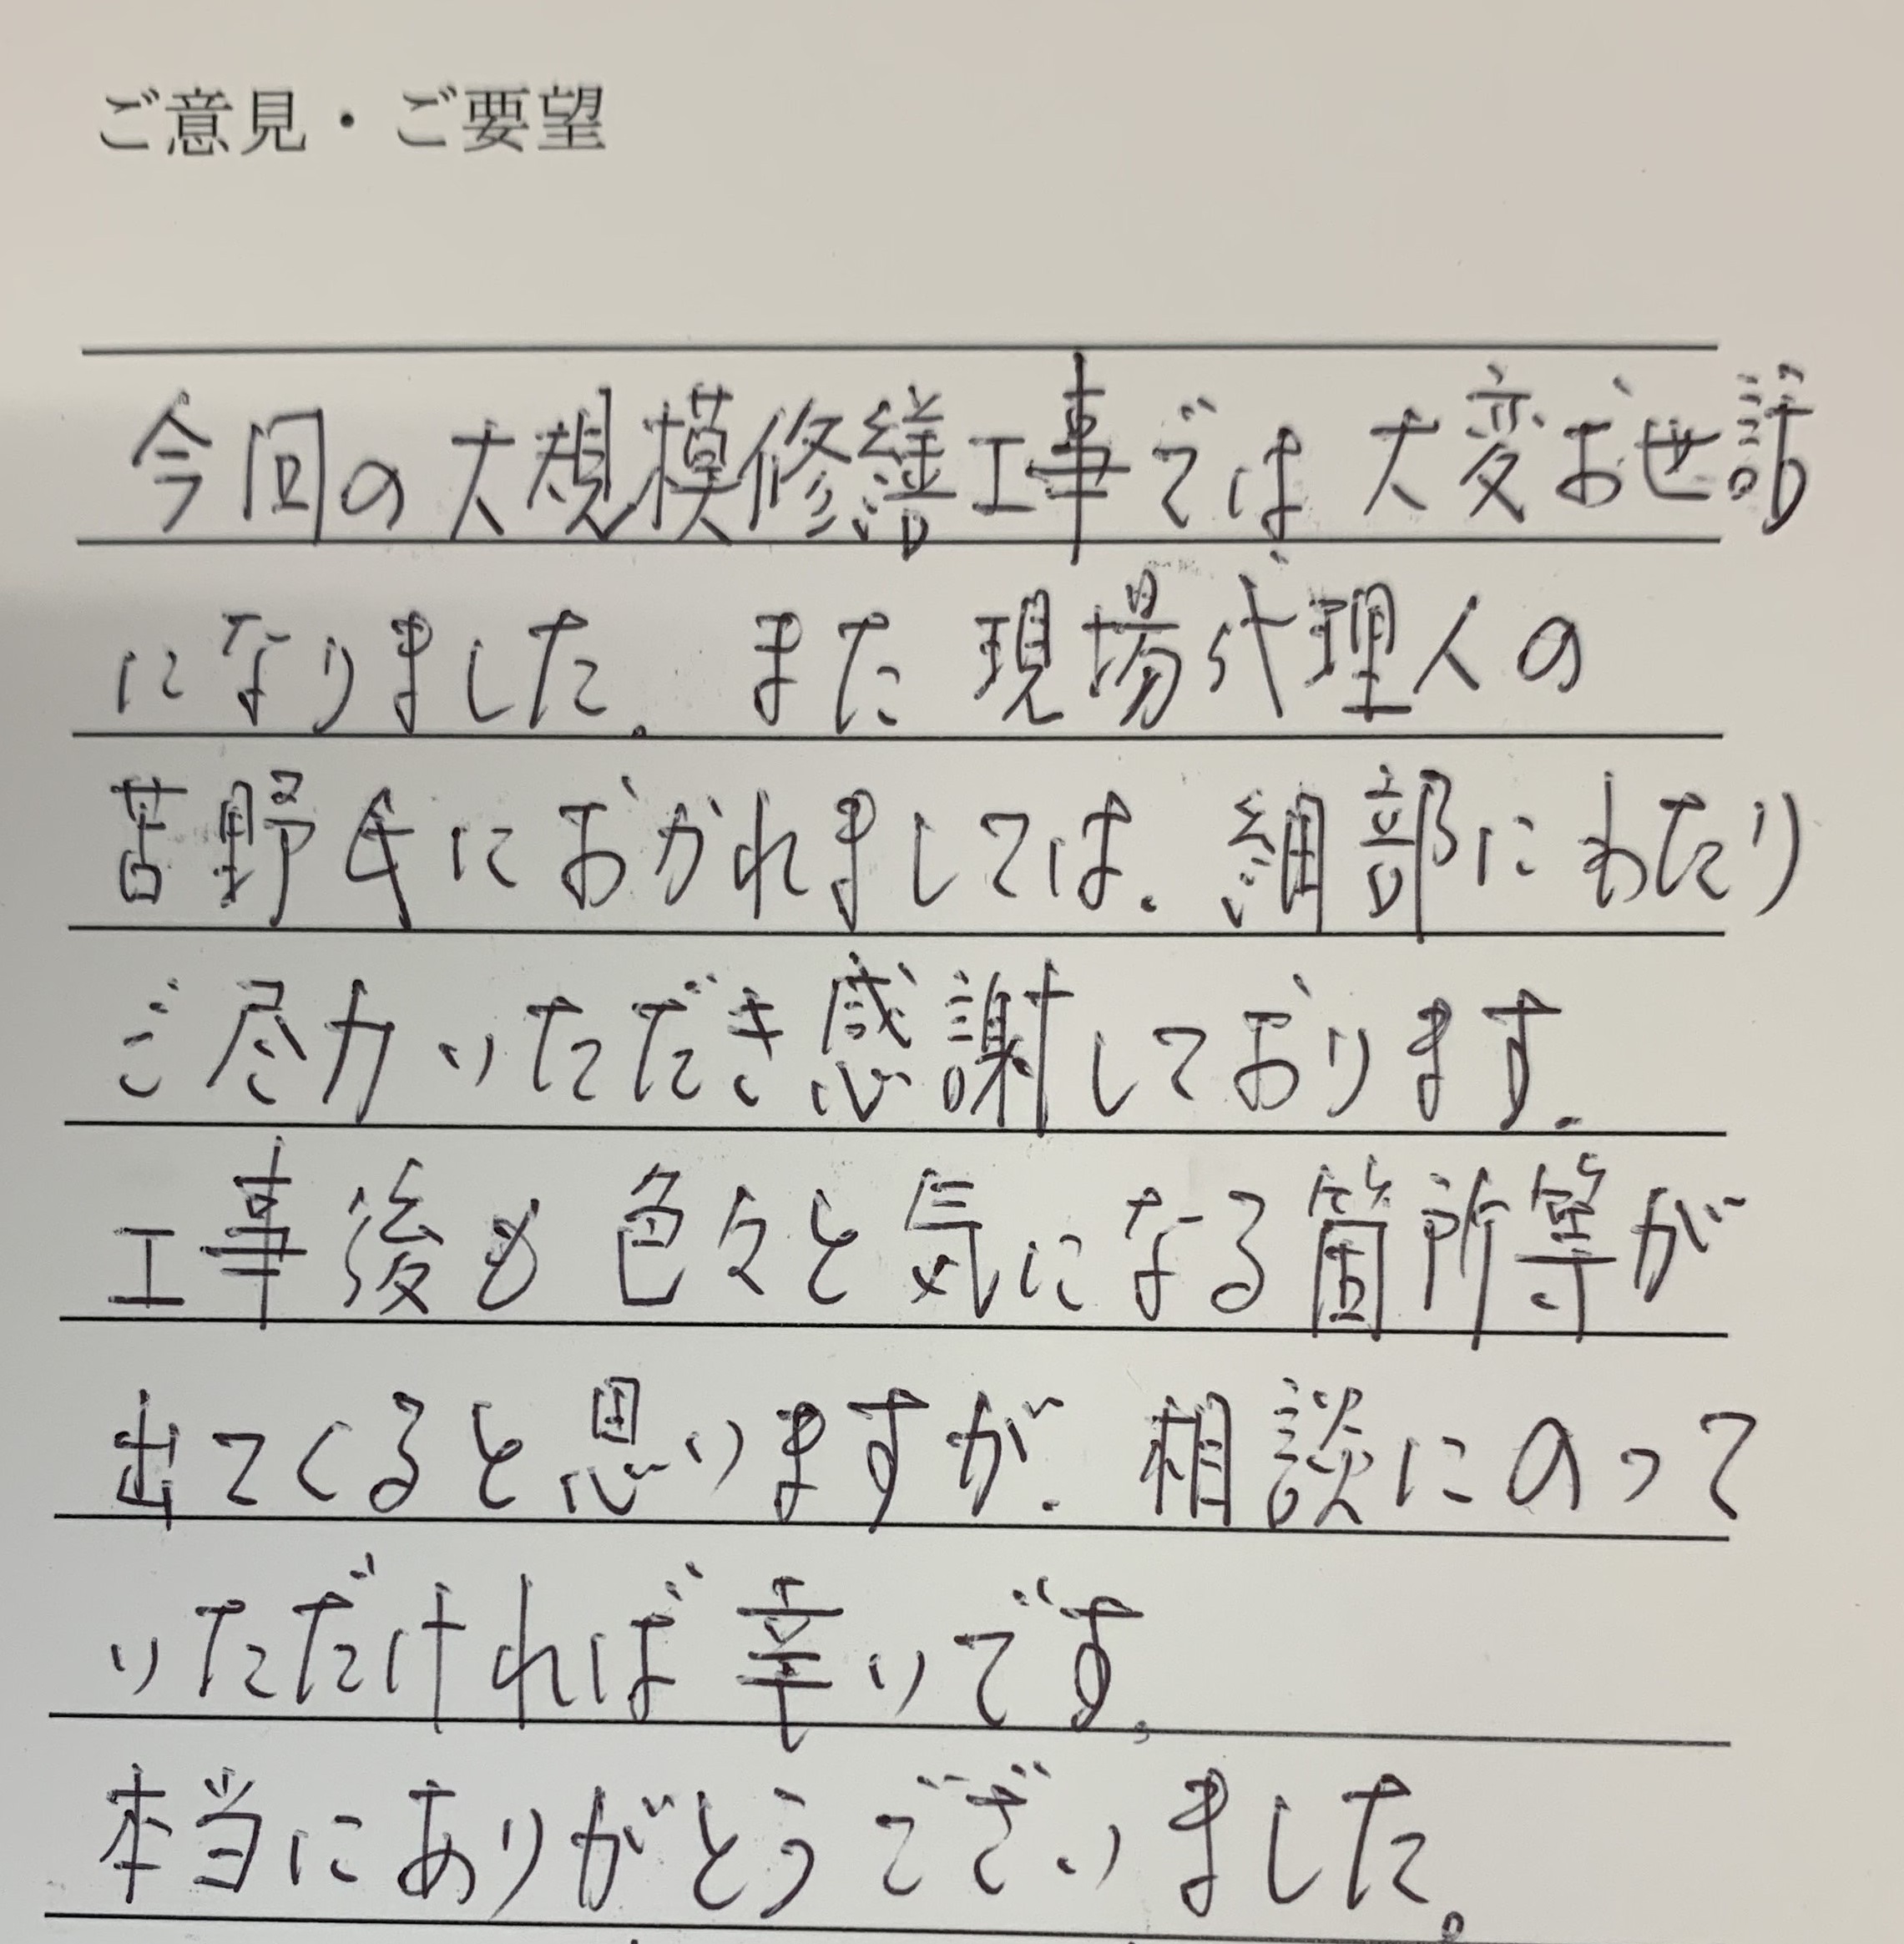 ご意見・ご要望
今回の大規模修繕工事では大変お世話
になりました。また現場代理人の
苫野氏におかれましては、細部にわたり
ご尽力いただき感謝しております。
工事後も色々と気になる箇所等が
出てくると思いますが、相談にのって
いただければ幸いです。
本当にありがとうございました。